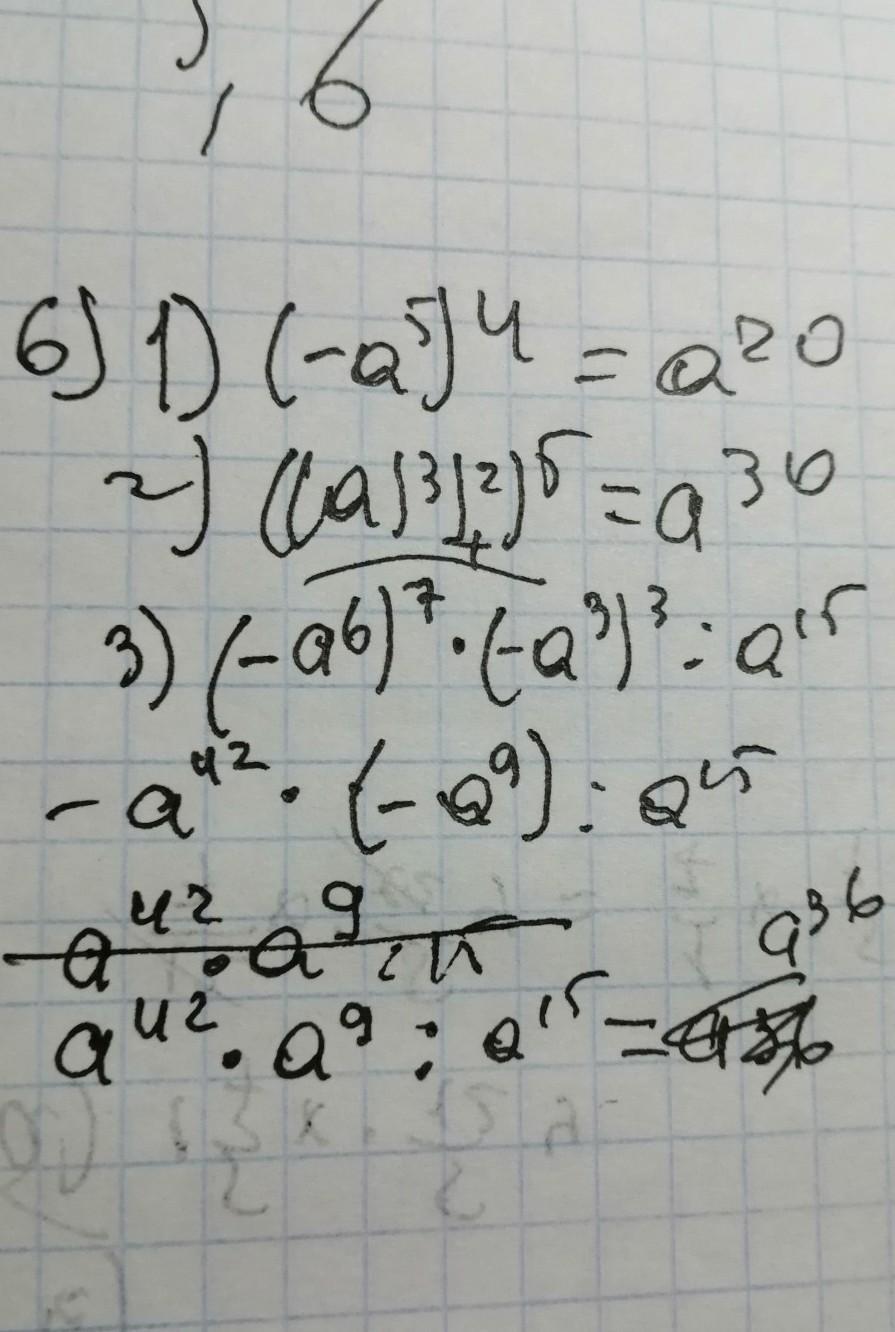 , 6
6) 1) (-a⁵)⁴ = a²⁰
2) (((a)³)²)⁵ = a³⁰
3) (-a⁶)⁷ · (-a³)³ : a¹⁵
- a⁴² · (- a⁹) : a¹⁵
a⁴² · a⁹
a⁴² · a⁹ : a¹⁵ = a³⁶